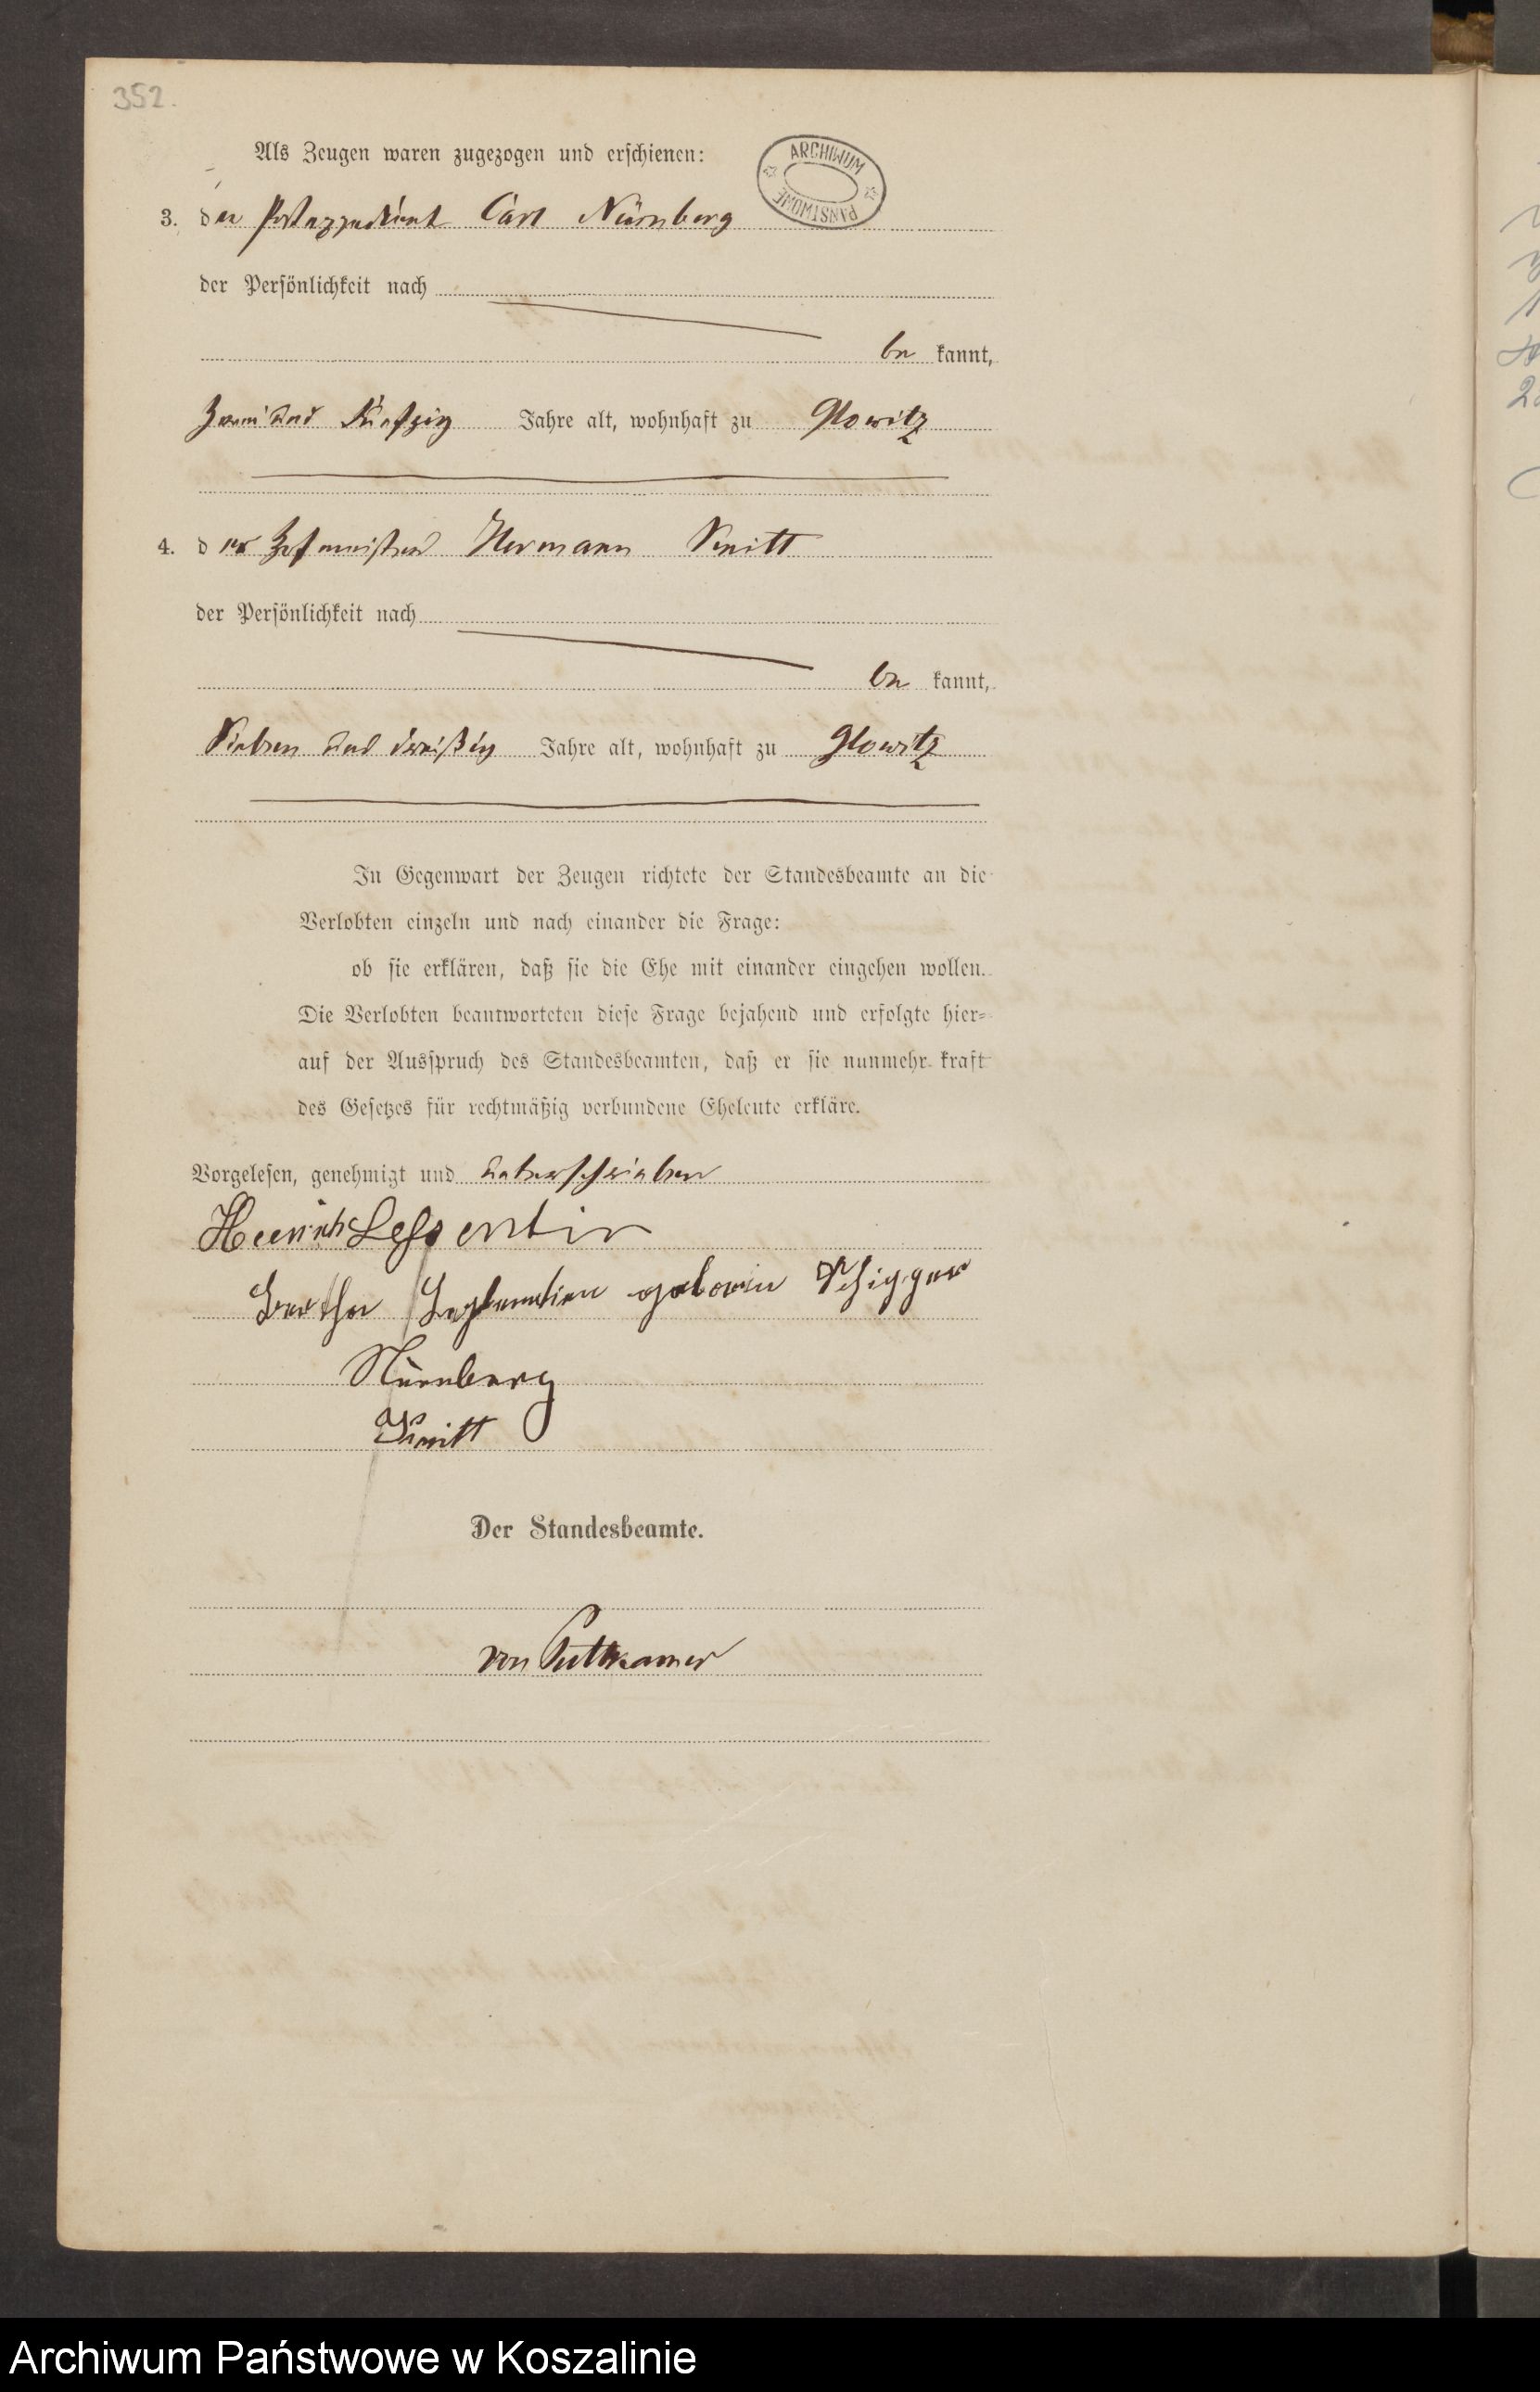 352.
Als Zeugen waren zugezogen und erschienen:
ARCHIWUM PAŃSTWOWE
3. der Postexpedient Carl Nürnberg
der Persönlichkeit nach
be kannt,
Zwei und Fünfzig Jahre alt, wohnhaft zu Glowitz
4. der Hermann Smitt
der Persönlichkeit nach
be kannt,
Sieben und dreißig Jahre alt, wohnhaft zu Glowitz
In Gegenwart der Zeugen richtete der Standesbeamte an die
Verlobten einzeln und nach einander die Frage:
ob sie erklären, daß sie die Ehe mit einander eingehen wollen.
Die Verlobten beantworteten diese Frage bejahend und erfolgte hier-
auf der Ausspruch des Standesbeamten, daß er sie nunmehr kraft
des Gesetzes für rechtmäßig verbundene Eheleute erkläre.
Vorgelesen, genehmigt und unterschrieben
Heinrich Lessentin
Bertha geboren
Nürnberg
Smitt
Der Standesbeamte.
von Puttkamer
Archiwum Państwowe w Koszalinie